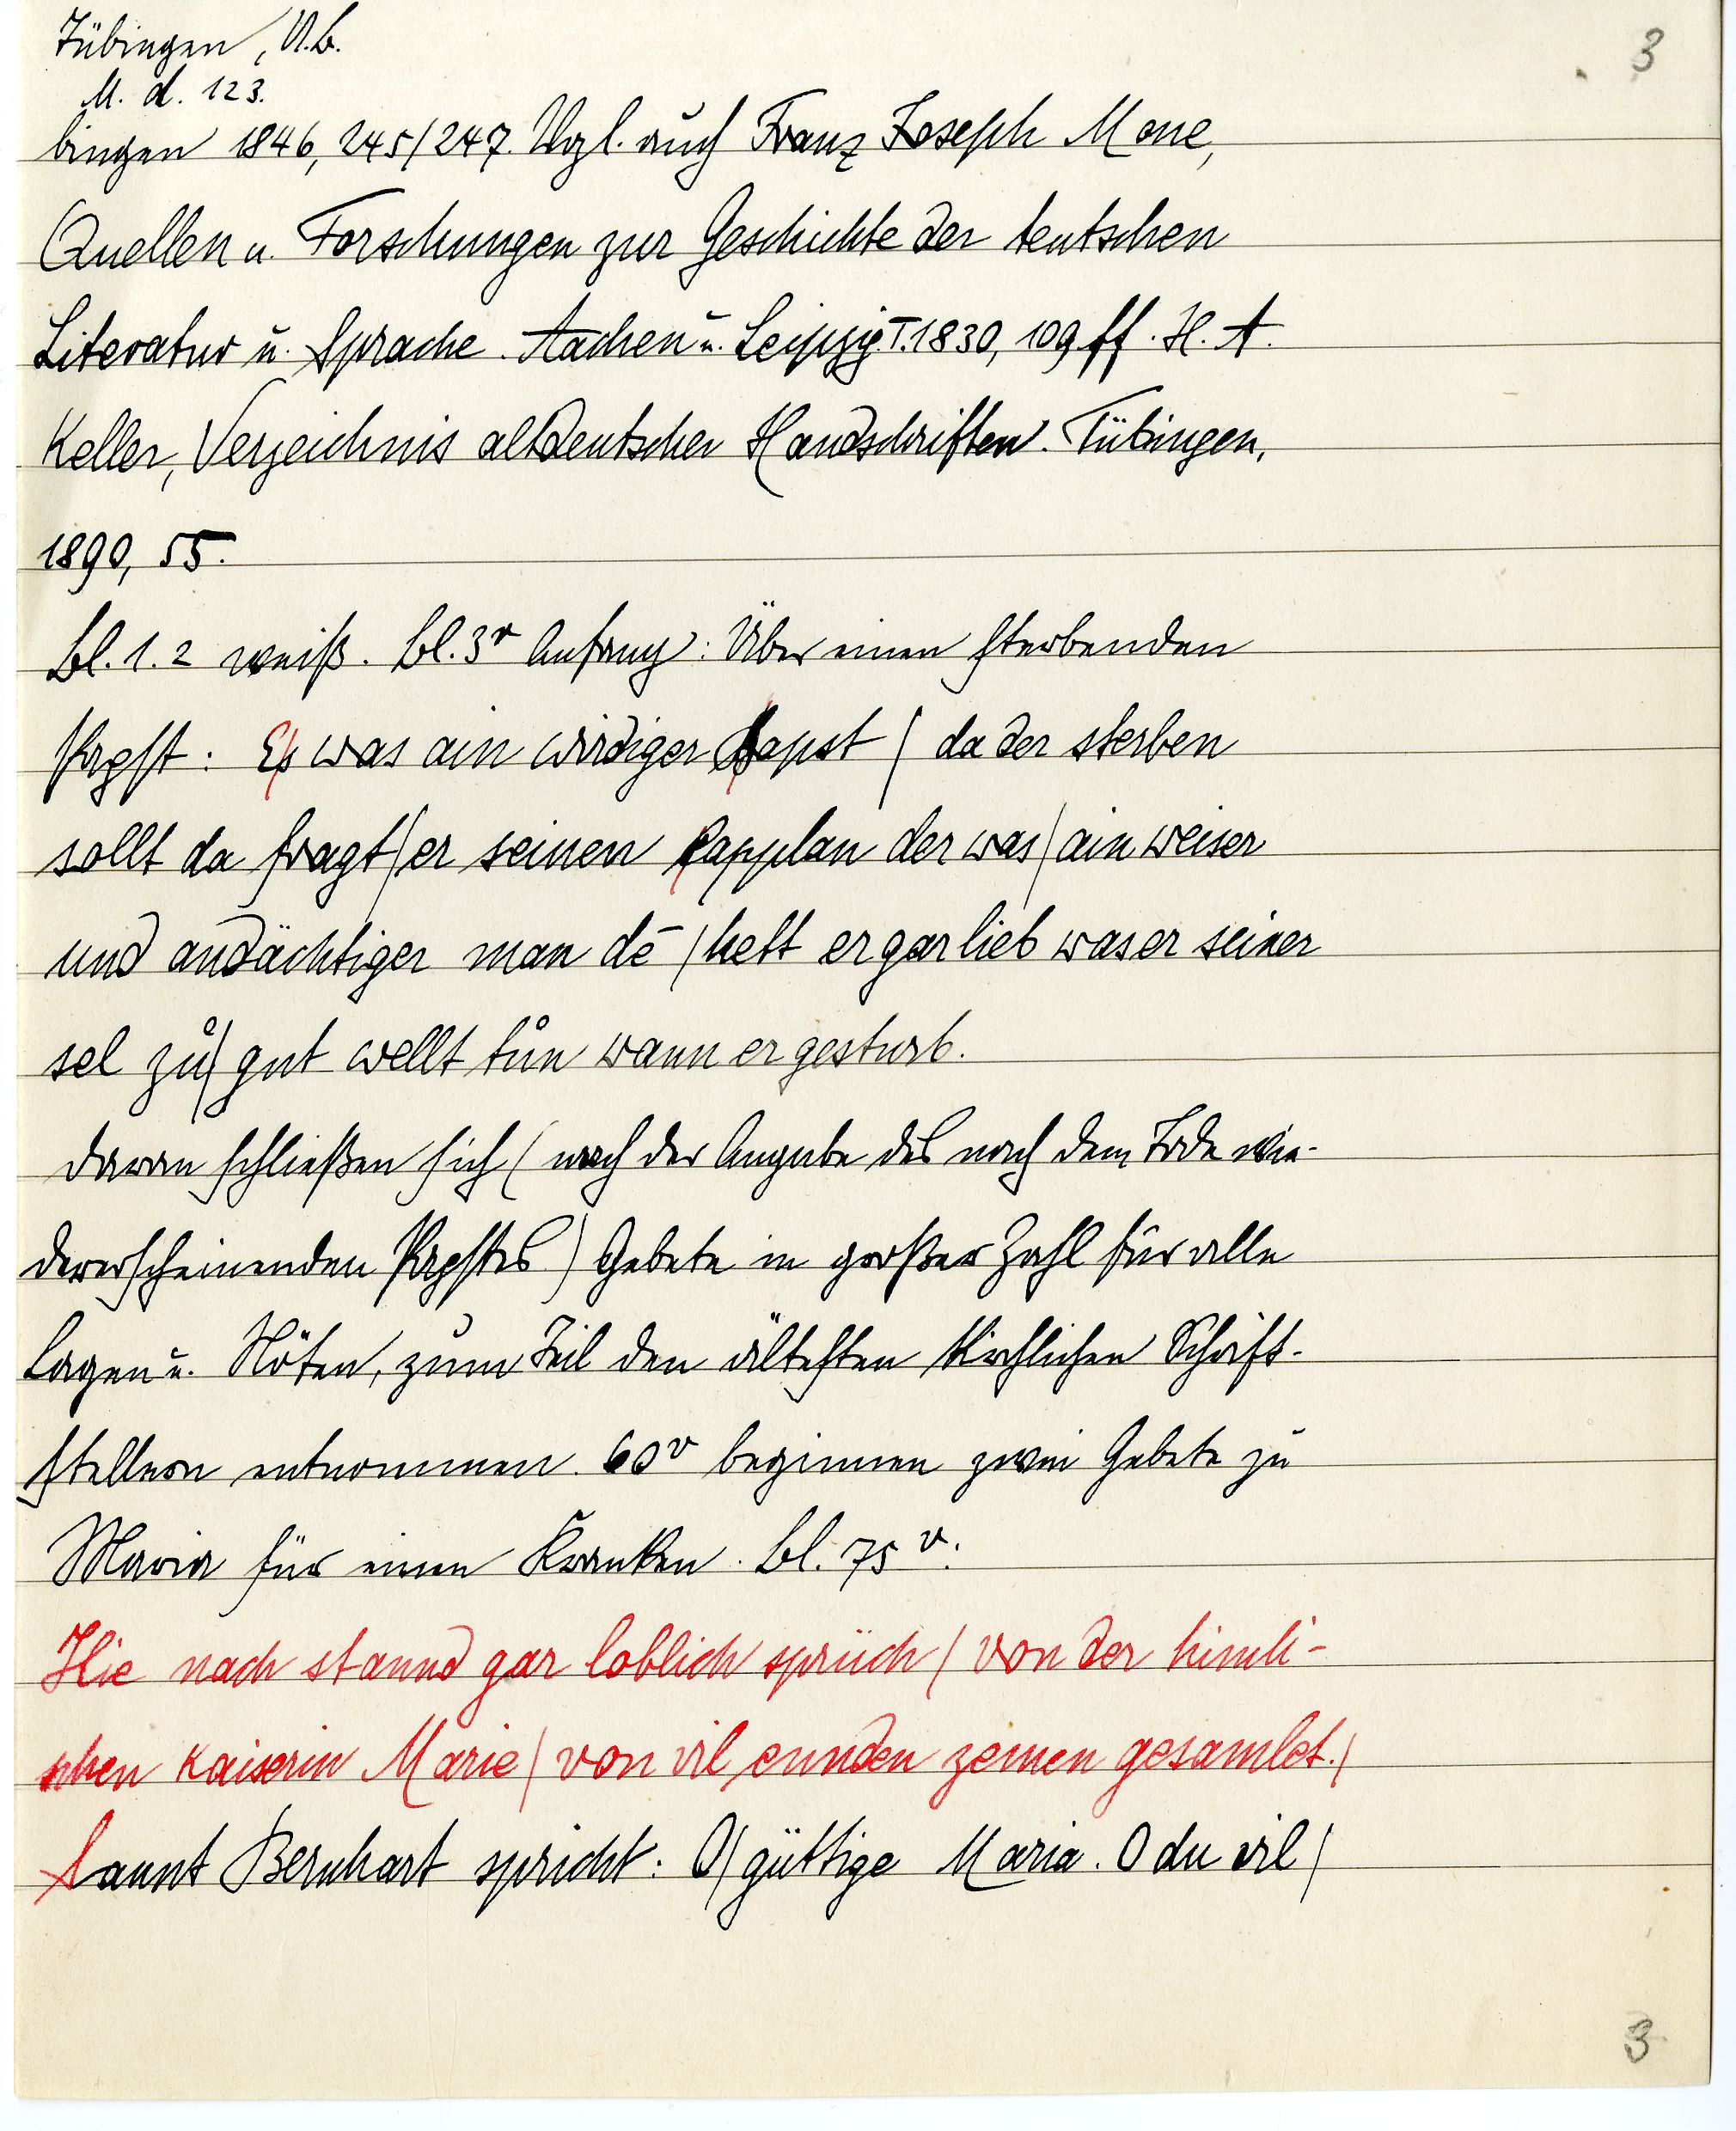 Tübingen, U.B.
M. d. 123.
3
bingen 1846, 245/247. Vgl. auch Franz Joseph Mone,
Quellen u. Forschungen zur Geschichte der teutschen
Literatur u. Sprache. Aachen u. Leipzig I. 1830, 109 ff. H. A.
Keller, Verzeichnis altdeutscher Handschriften. Tübingen,
1890, 55.
Bl. 1. 2 weiß. Bl. 3r Anfang: Über einen sterbenden
Papst: Es was ain wirdiger Bapst | da der sterben
sollt da fragt | er seinen kapplan der was | ain weiser
und andächtiger man dē | hett er gar lieb was er seiner
sel zů | gut wellt tůn wann er gesturb.
Daran schließen sich (nach der Angabe des nach dem Tode wie-
dererscheinenden Papstes) Gebete in großer Zahl für alle
Lagen u. Nöten, zum Teil den ältesten kirchlichen Schrift-
stellern entnommen. 60v beginnen zwei Gebete zu
Maria für einen Kranken. Bl. 75v:
Hie nach stannd gar loblich sprüch | von der himli-
schen kaiserin Marie | von vil ennden zemen gesamlet. |
Sannt Bernhart spricht: O | güttige Maria. O du vil |
3